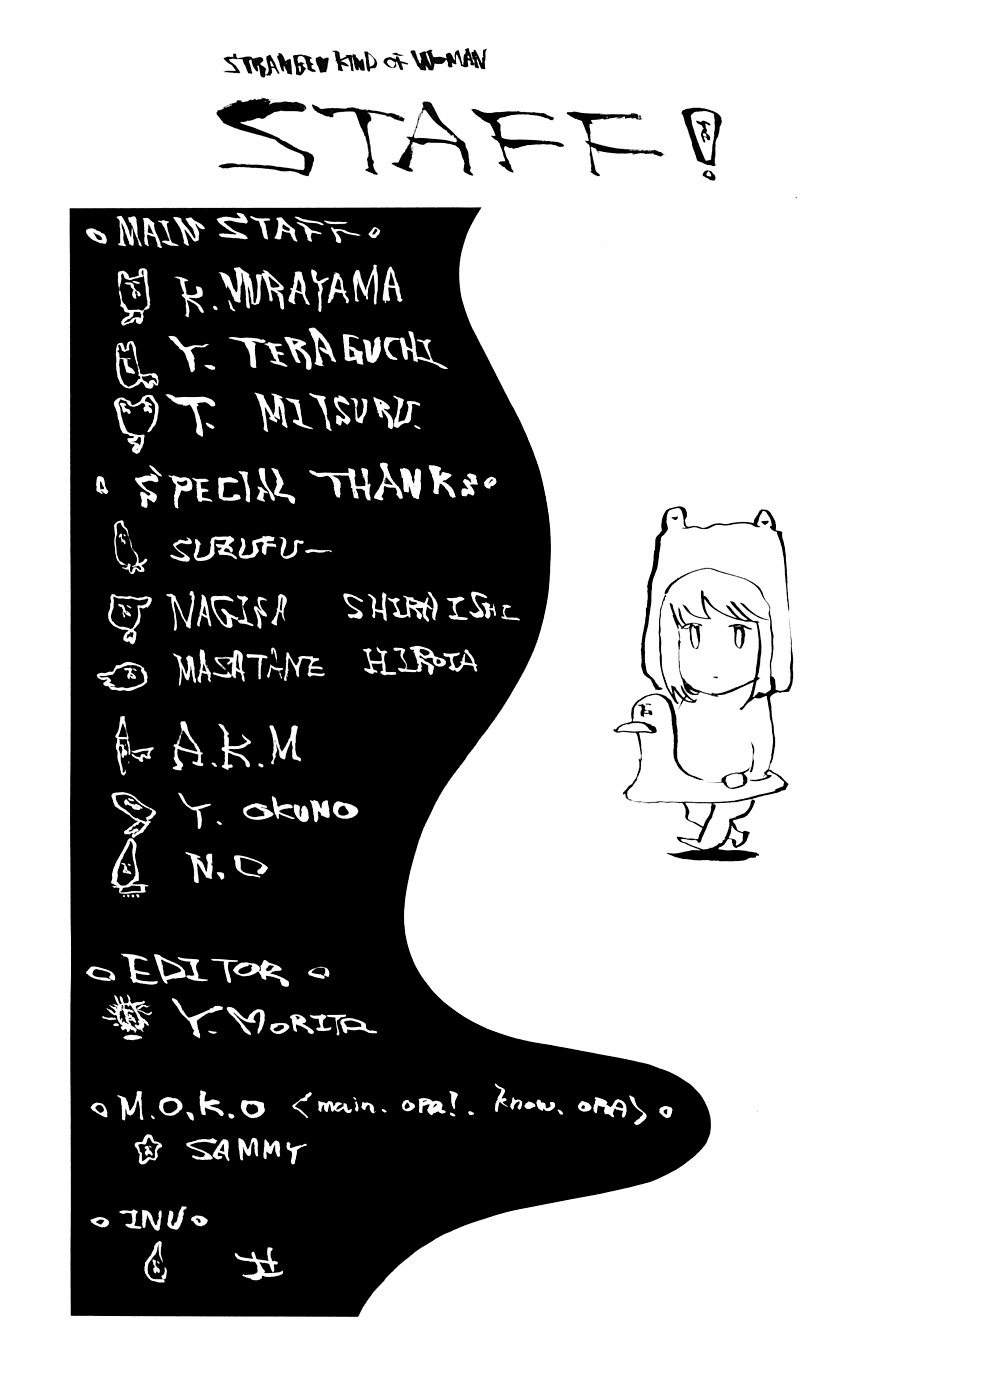 KIND OF WOMAN
STAFF!
MAIN STAFF
K. MURAYAMA
Y. TERAGUCHI
T. MITSURU.
SPECIAL THANKS
SUZUFU—
NAGISA SHIRAISHI
MASATANE HIROTA
A.K.M
Y. OKUNO
N.O
EDITOR
Y. MORITA
M.O.K.O <main. opa!. know. OPA>
SAMMY
INU
井